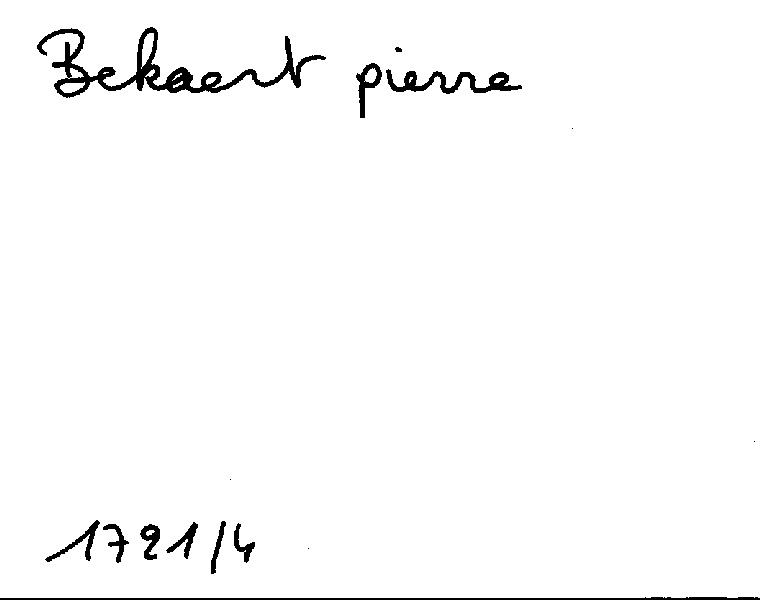 Bekaert pierre
1721/4